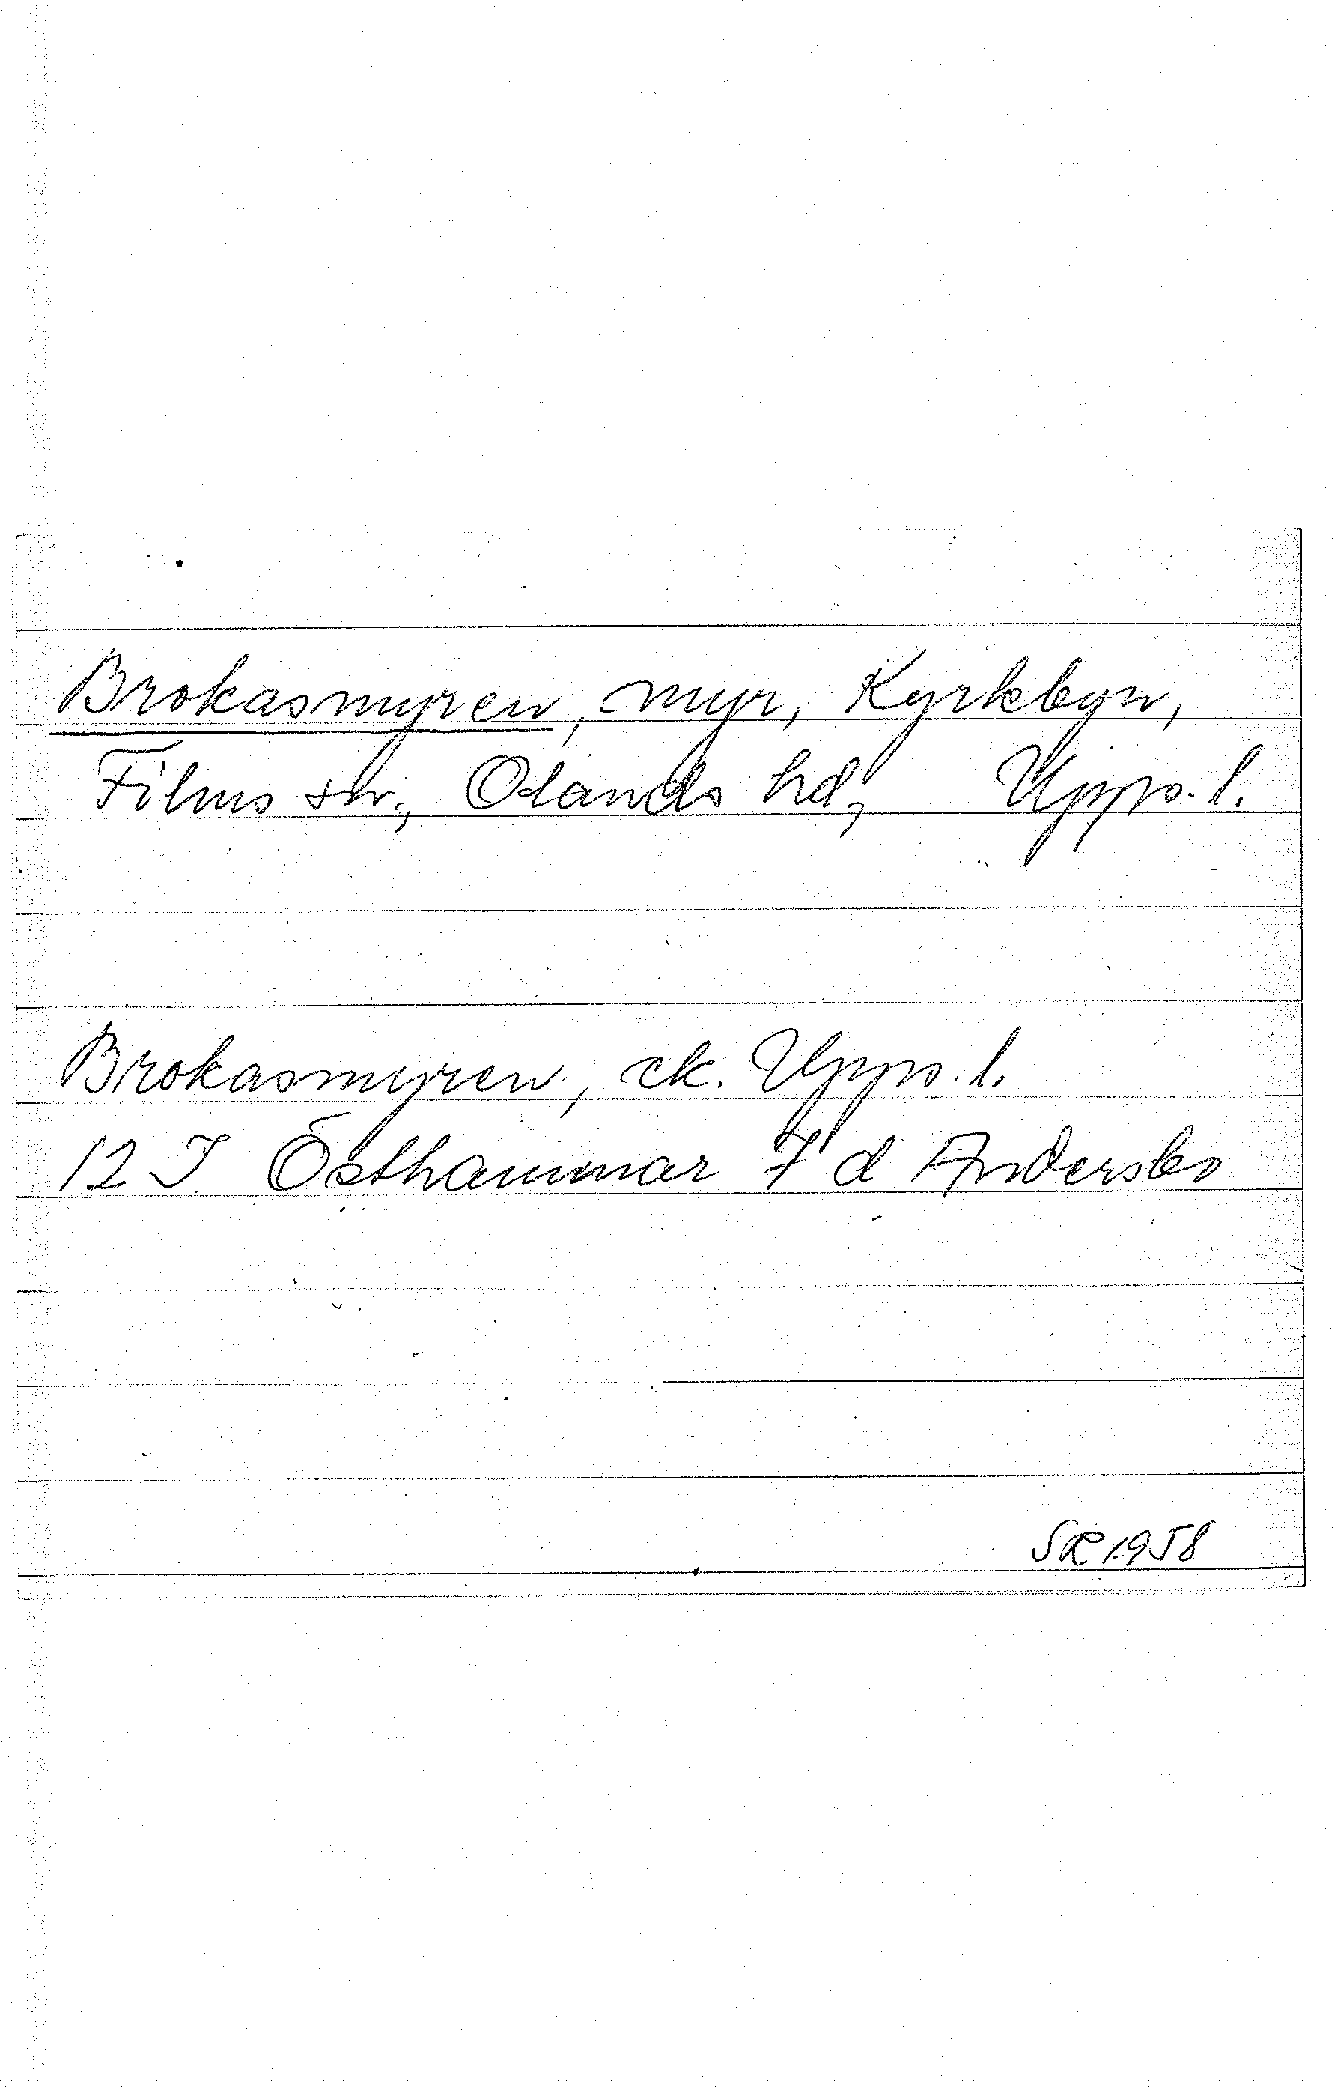 Brokasmyren, myr, Kyrkbyn,
Films sn., Olands hd, Upps. l.
Brokasmyren, ek. Upps. l.
12 I Östhammar 7 d Andersbo
SR 1958